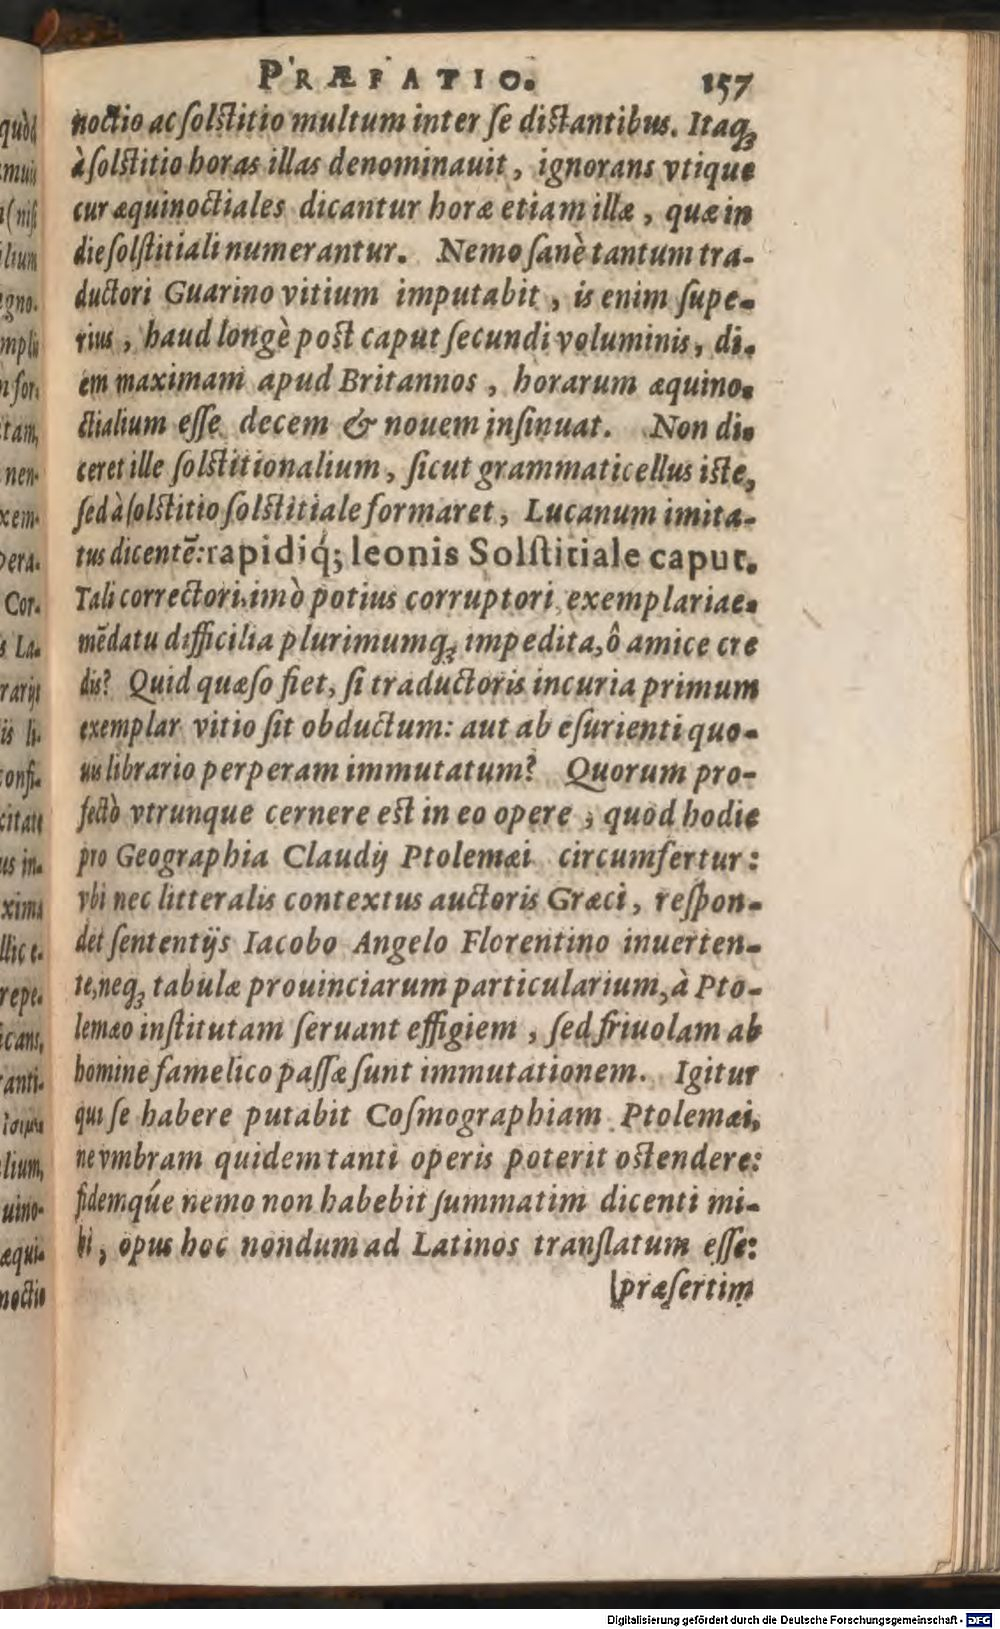 PRÆFATIO. 157
noctio ac ſolſtitio multum inter ſe diſtantibus. Itaqꝫ
à ſolſtitio horas illas denominauit, ignorans vtique
cur æquinoctiales dicantur horæ etiam illæ, quæ in
die ſolſtitiali numerantur. Nemo ſanè tantum tra-
ductori Guarino vitium imputabit, is enim ſupe-
rius, haud longè poſt caput ſecundi voluminis, di-
em maximam apud Britannos, horarum æquino-
ctialium eſſe decem & nouem inſinuat. Non di-
ceret ille ſolſtitionalium, ſicut grammaticellus iſte,
ſed à ſolſtitio ſolſtitiale formaret, Lucanum imita-
tus dicentē: rapidiq́; leonis Solſtitiale caput.
Tali correctori, imò potius corruptori exemplaria e-
mēdatu difficilia plurimumqꝫ impedita, ô amice cre
dis? Quid quæſo fiet, ſi traductoris incuria primum
exemplar vitio ſit obductum: aut ab eſurienti quo-
uis librario perperam immutatum? Quorum pro-
fectò vtrunque cernere eſt in eo opere, quod hodie
pro Geographia Claudij Ptolemæi circumfertur:
vbi nec litteralis contextus auctoris Græci, reſpon-
det ſententijs Iacobo Angelo Florentino inuerten-
te, neqꝫ tabulæ prouinciarum particularium, à Pto-
lemæo inſtitutam ſeruant effigiem, ſed friuolam ab
homine famelico paſſæ ſunt immutationem. Igitur
qui ſe habere putabit Coſmographiam Ptolemæi,
ne vmbram quidem tanti operis poterit oſtendere:
fidemq́ue nemo non habebit ſummatim dicenti mi-
hi, opus hoc nondum ad Latinos tranſlatum eſſe:
præſertim
Digitalisierung gefördert durch die Deutsche Forschungsgemeinschaft - DFG